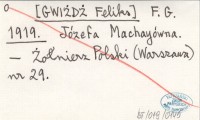 [GWIŻDŻ Feliks] F. G.
1919. Józefa Machayówna.
— Żołnierz Polski (Warszawa)
nr 29.